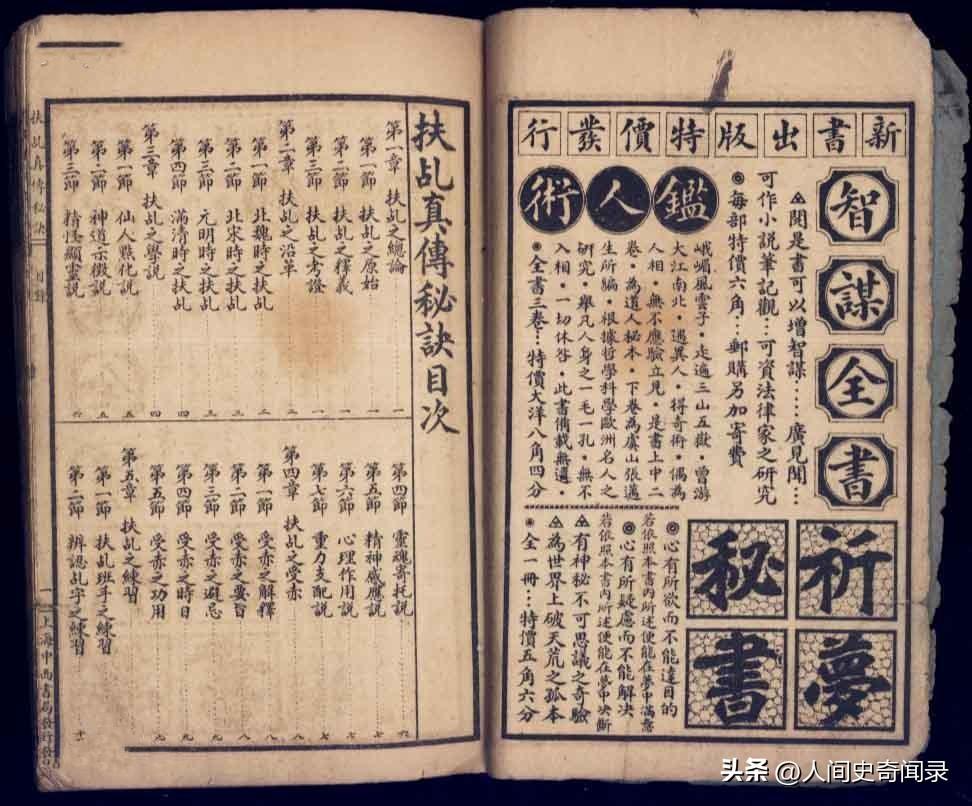 新書出版特價發行
智謀全書
閱是書可以增智謀……廣見聞…
可作小說筆記觀…可資法律家之研究
每部特價六角…郵購另加寄費
鑑人術
峨嵋風雲子·走遍三山五嶽·曾游
大江南北·遇異人·得奇術·偶為
人相·無不應驗立見·是書上中二
卷·為道人秘本·下卷為虞山張邁
生所編·根據哲學科學歐洲名人之
研究·舉凡人身之一毛一孔·無不
入相·一切休咎·此書備載無遺·
全書三卷…特價大洋八角四分
祈夢秘書
◎心有所欲而不能達目的
若依照本書內所述便能在夢中滿意
◎心有所疑慮而不能解決
若依照本書內所述便能在夢中決斷
有神秘不可思議之奇驗
為世界上破天荒之孤本
全一冊…特價五角六分
扶乩真傳秘訣目次
第一章 扶乩之總論
第一節 扶乩之原始
第二節 扶乩之釋義
第三節 扶乩之考證
第二章 扶乩之沿革
第一節 北魏時之扶乩
第二節 北宋時之扶乩
第三節 元明時之扶乩
第四節 滿清時之扶乩
第三章 扶乩之學說
第一節 仙人點化說
第二節 神道示徵說
第三節 精怪顯靈說
第四節 靈魂寄托說
第五節 精神感應說
第六節 心理作用說
第七節 重力支配說
第四章 扶乩之受赤
第一節 受赤之解釋
第二節 受赤之要旨
第三節 受赤之避忌
第四節 受赤之時日
第五節 受赤之功用
第五章 扶乩之練習
第一節 扶乩班手之練習
第二節 辨認乩字之練習
扶乩真傳秘訣 目錄
一 上海中西書局發行
头条 @人间史奇闻录